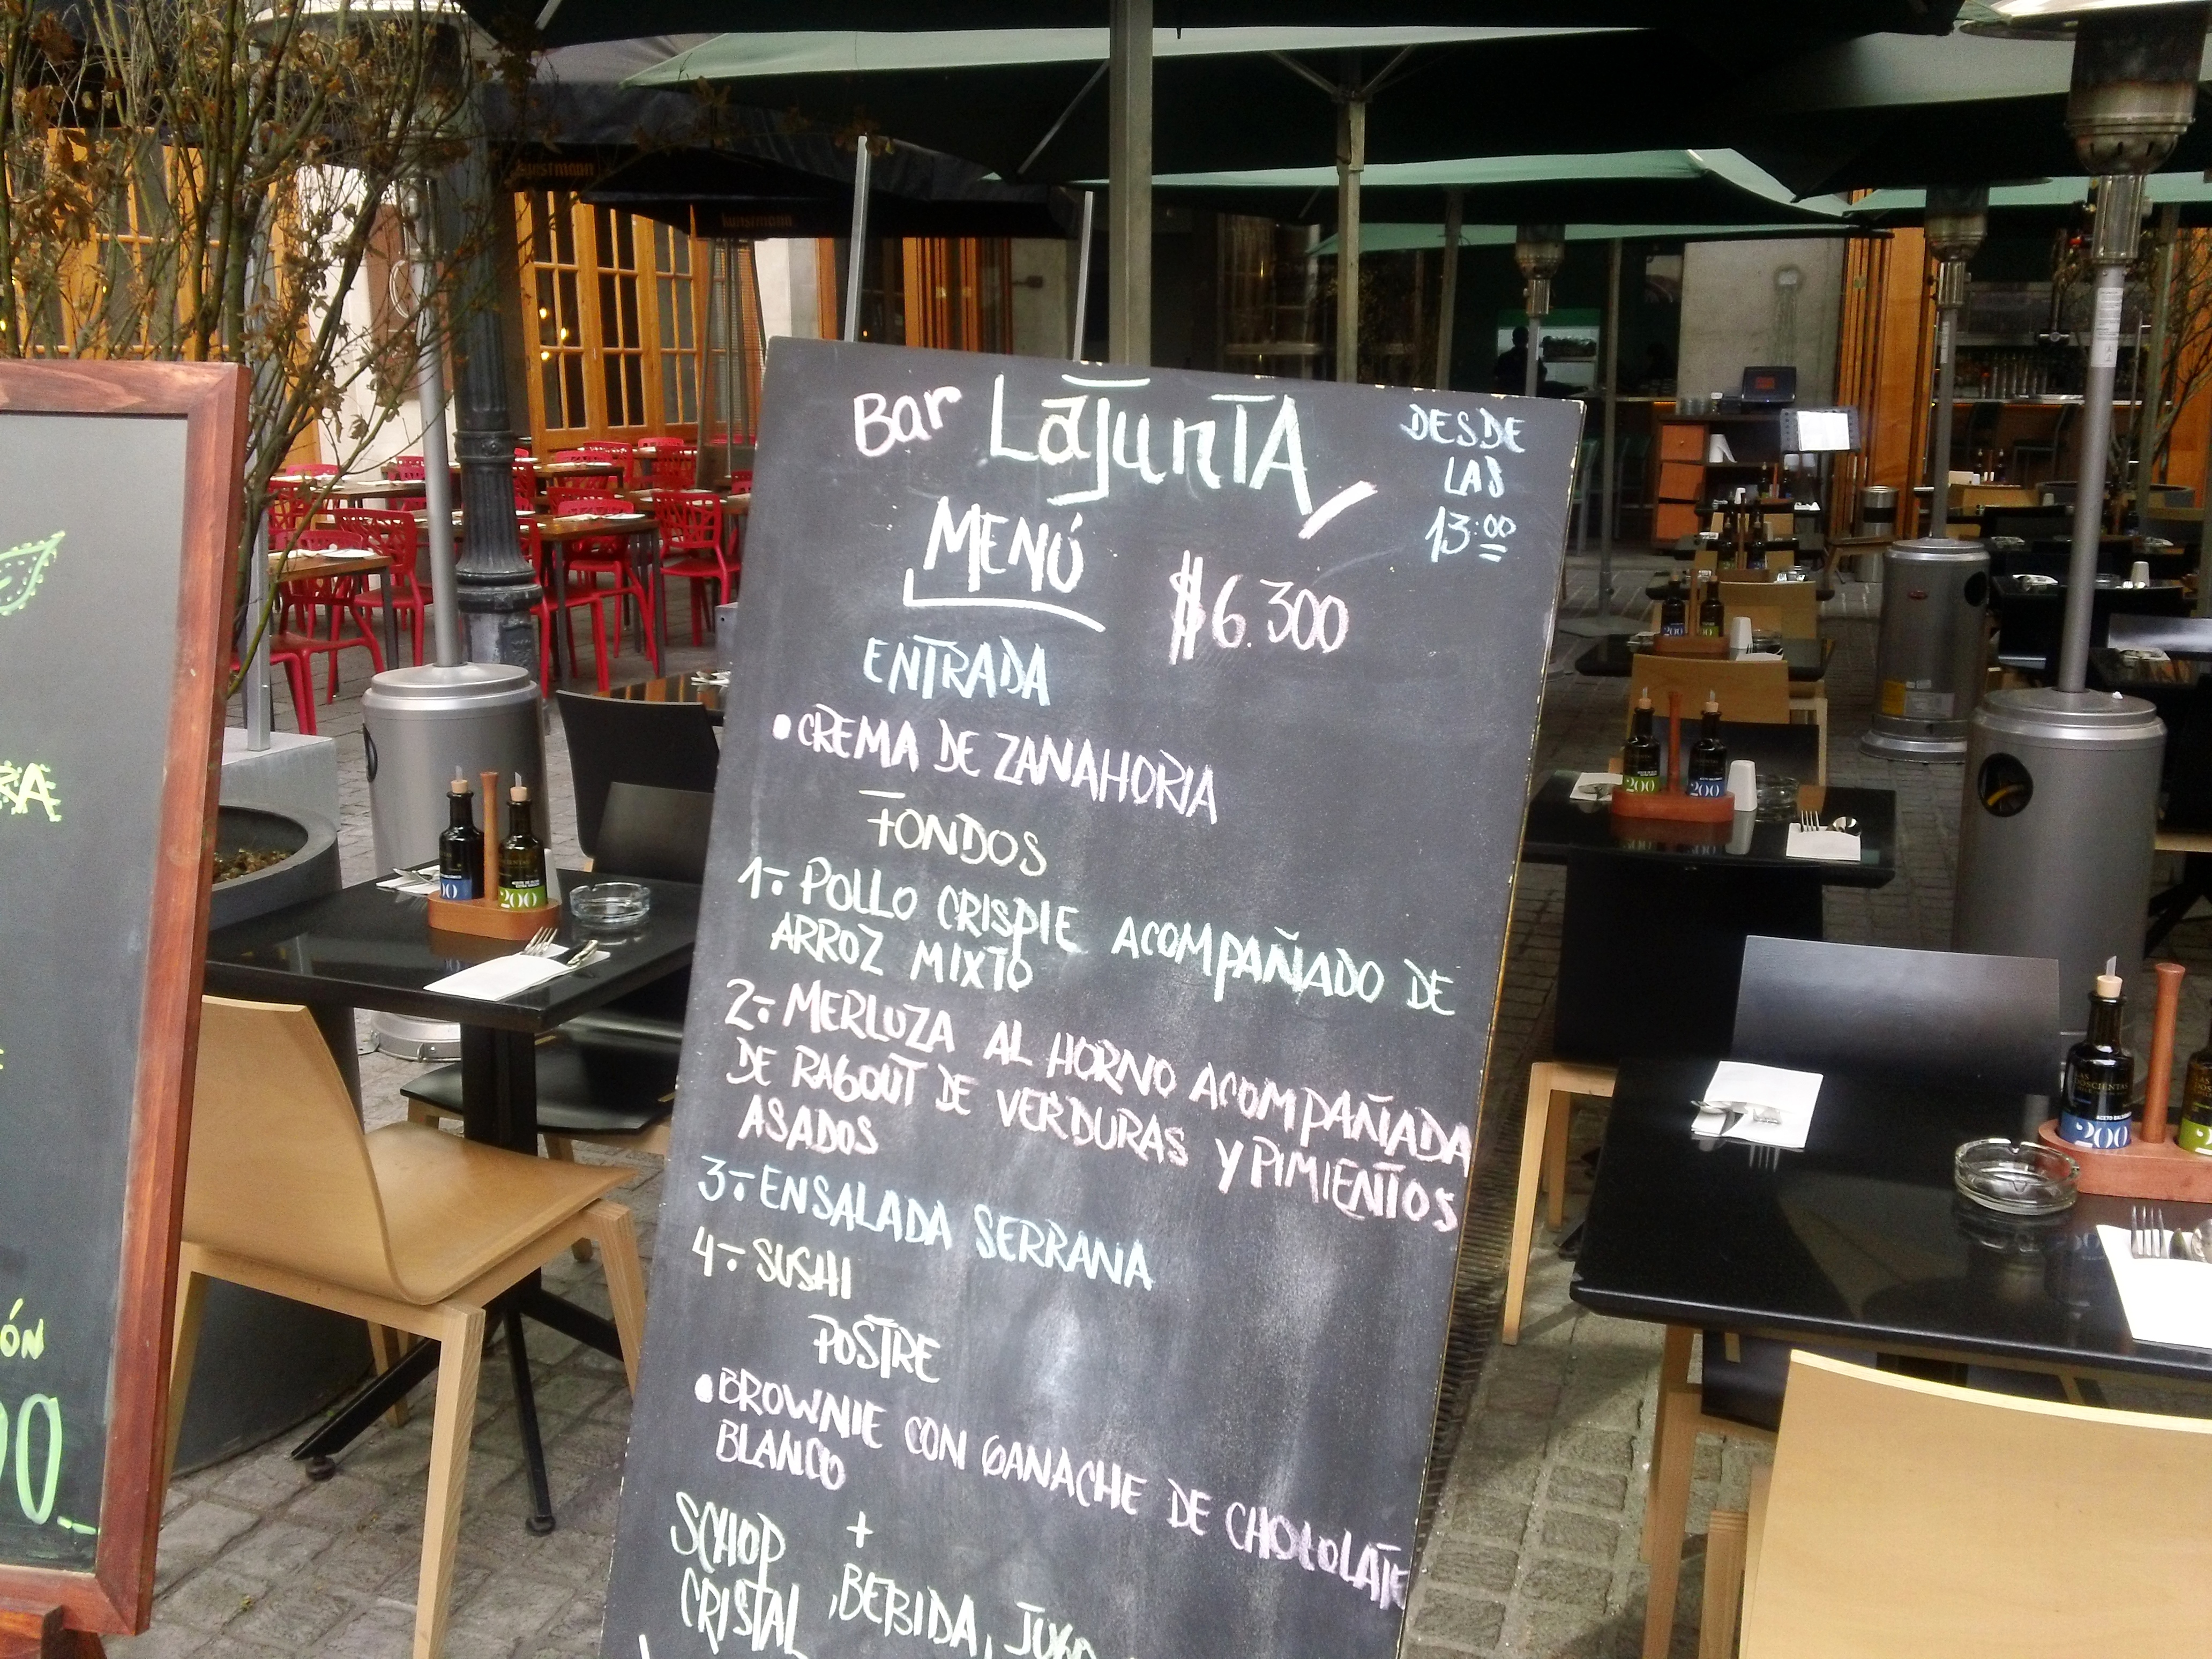 Bar LaJunTA
DESDE
LAS
13:00
MENÚ
$6.300
ENTRADA
• CREMA DE ZANAHORIA
FONDOS
1.- POLLO CRISPIE ACOMPAÑADO DE
ARROZ MIXTO
2.- MERLUZA AL HORNO ACOMPAÑADA
DE RAGOUT DE VERDURAS Y PIMIENTOS
ASADOS
3.- ENSALADA SERRANA
4.- SUSHI
POSTRE
• BROWNIE CON GANACHE DE CHOCOLATE
BLANCO
+
SCHOP
CRISTAL, BEBIDA, JUGO
kunstmann
kunstmann
200
200
200
200
200